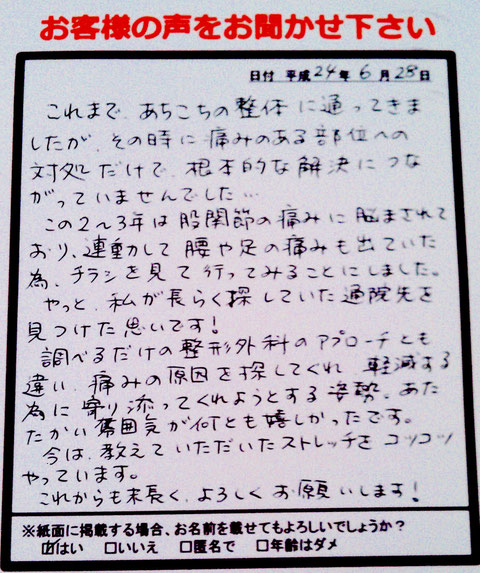 お客様の声をお聞かせ下さい
日付 平成24年6月28日
これまで、あちこちの整体に通ってきま
したが、その時に痛みのある部位への
対処だけで、根本的な解決につな
がっていませんでした…
この2〜3年は股関節の痛みに脳まされて
おり、連動して腰や足の痛みも出ていた
為、チラシを見て行ってみることにしました。
やっと、私が長らく探していた通院先を
見つけた思いです!
調べるだけの整形外科のアプローチとも
違い、痛みの原因を探してくれ、軽減する
為に寄り添ってくれようとする姿勢、あた
たかい雰囲気が何とも嬉しかったです。
今は、教えていただいたストレッチをコツコツ
やっています。
これからも末長く、よろしくお願いします!
※紙面に掲載する場合、お名前を載せてもよろしいでしょうか?
☑はい □いいえ □匿名で □年齢はダメ